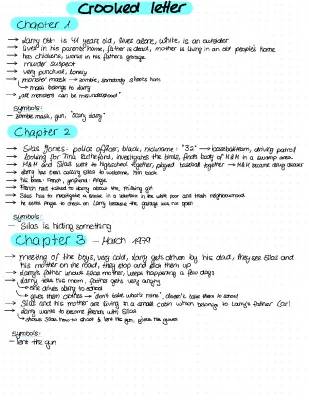 Crooked letter
Chapter 1
→ Larry Ott- is 41 years old, lives alone, white, is an outsider
→ lives in his parents home, father is dead, mother is living in an old people's home
→ has chickens, works in his father's garage
→ murder suspect
→ very punctual, lonely
→ monster mask → zombie, somebody shoots him
↳ mask belongs to Larry
→ "all monsters can be misunderstood"
Symbols:
- zombie mask, gun, "scary Larry"
Chapter 2
→ Silas Jones- police officer, black, nickname: "32" → baseballteam, driving patrol
→ looking for Tina Rutherford, investigates the birds, finds body of M&M in a swamp area
→ M&M and Silas were at highschool together, played baseball together → M&M became drug dealer
→ Larry has been calling Silas to welcome him back
→ his boss: French, girlfriend: Angie
→ French had talked to Larry about the missing girl
→ Silas has to investigate a snake in a mailbox in the white poor and trash neighbourhood
→ he sends Angie to check on Larry because the garage was not open
Symbols:
- Silas is hiding something
Chapter 3 - March 1979
→ meeting of the boys, very cold, Larry gets driven by his dad, they see Silas and
his mother on the road, they stop and pick them up
→ Larry's father knows Silas mother, keeps happening a few days
→ Larry tells his mom, father gets very angry
↳ she drives Larry to school
↳ gives them clothes → "don't take other's name", doesn't take them to school
→ Silas and his mother are living in a small cabin which belongs to Larry's father (Carl)
→ Larry wants to become friends with Silas
↳ shows Silas how to shoot & lent the gun, gives the gloves
Symbols:
- lent the gun